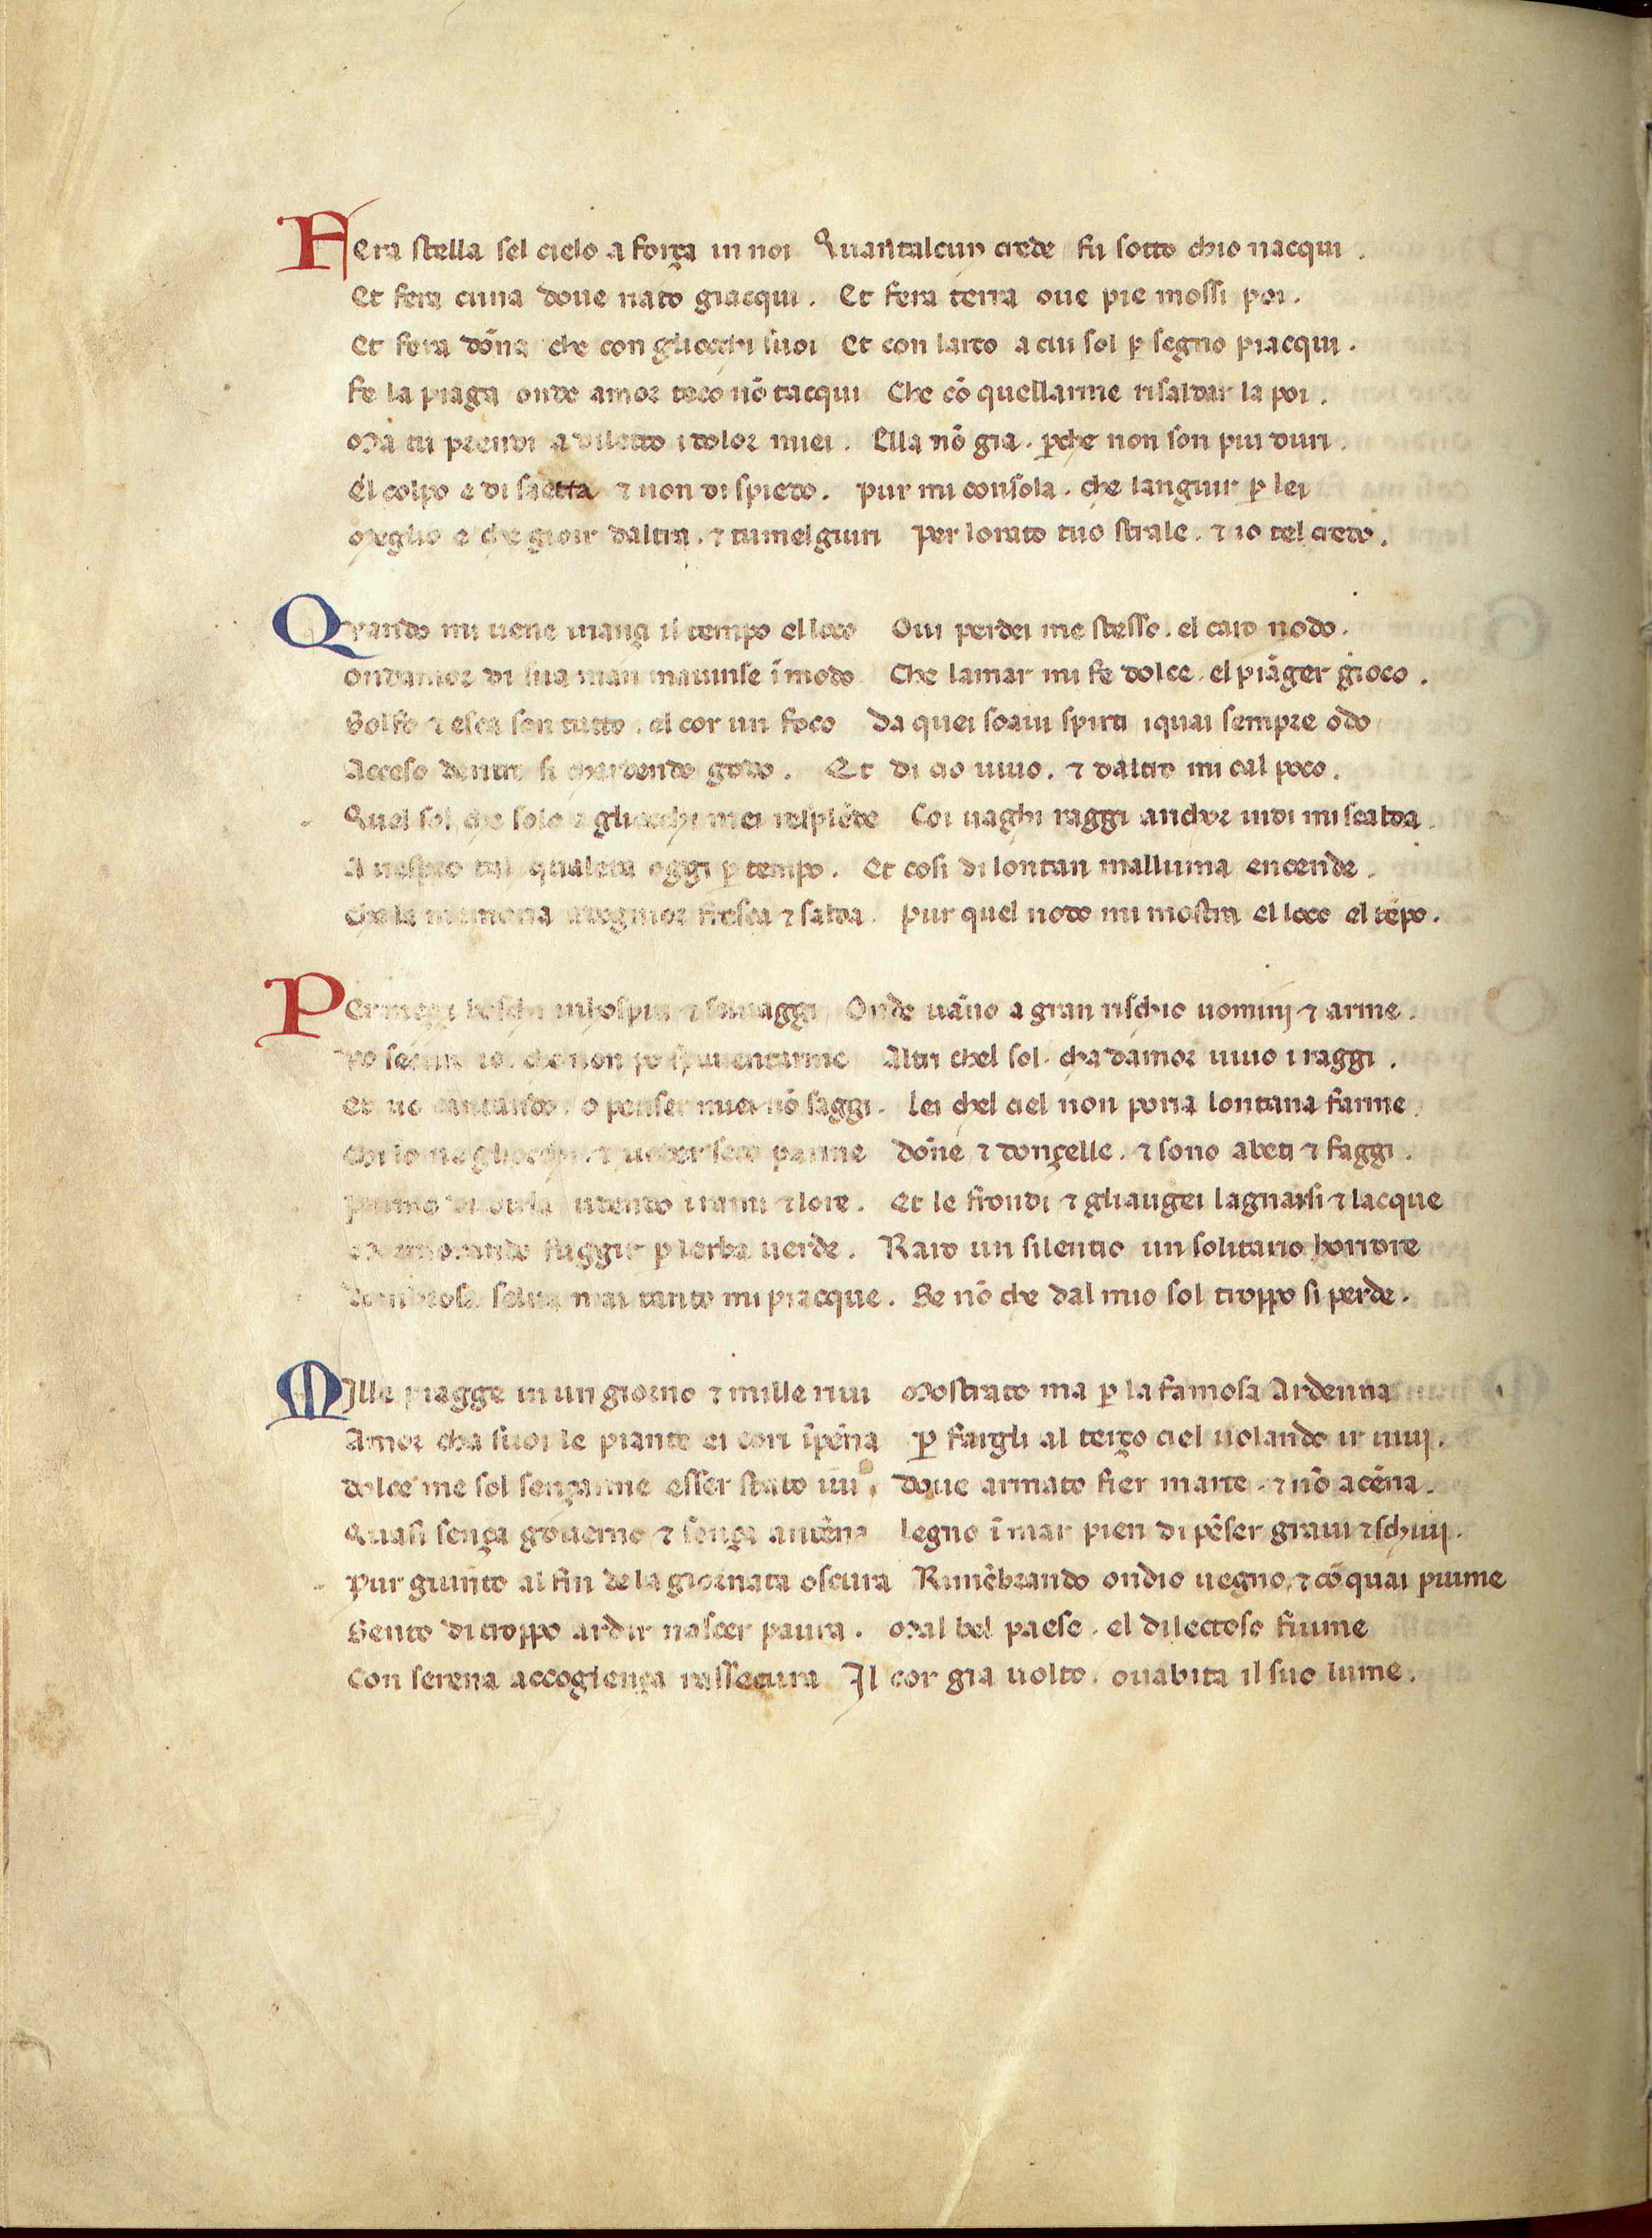 Fera stella sel cielo a força in noi Quantalcun crede fu sotto chio nacqui .
Et fera cuna doue nato giacqui . Et fera terra oue pie mossi poi .
Et fera dōna che con gliocchi suoi Et con larco a cui sol p̱ segno piacqui .
fe la piaga onde amor teco nō tacqui Che cō quellarme risaldar la poi .
Ma tu prendi a diletto i dolor miei . Ella nō gia . p̱che non son piu duri .
El colpo e di saetta ⁊ non di spiedo . pur mi consola . che languir p̱ lei
Meglio e che gioir daltra . ⁊ tumelgiuri per lorato tuo strale . ⁊ io tel credo .
Quando mi uene inanҫi il tempo el loco Oui perdei me stesso . el caro nodo .
Ondamor di sua man mauinse ī modo Che lamar mi fe dolce . el piāger gioco .
Solfo ⁊ esca son tutto . el cor un foco da quei soaui spirti iquai sempre odo
Acceso dentro si chardendo godo . Et di cio uiuo . ⁊ daltro mi cal poco .
Quel sol che solo a gliocchi mei resplēde Coi uaghi raggi anchor indi mi scalda .
A uespro tal qualera oggi p̱ tempo . Et cosi di lontan malluma encende .
Che la memoria adognior fresca ⁊ salda . pur quel nodo mi mostra el loco el tēpo .
Per meҫi boschi inhospiti ⁊ seluaggi Onde uāno a gran rischio uomini ⁊ arme .
Vo securo io . che non po spauentarme Altri chel sol . cha damor uiuo i raggi .
Et uo cantando . o penser miei nō saggi . lei chel ciel non poria lontana farme .
Chi lo negliocchi . ⁊ ueder seco parme dōne ⁊ donҫelle . ⁊ sono abeti ⁊ faggi .
parme dudirla udendo i rami ⁊ lore . Et le frondi ⁊ gliaugei lagnarsi ⁊ lacque
Mormorando fuggir p̱ lerba uerde . Raro un silentio un solitario horrore
dombrosa selua mai tanto mi piacque . Se nō che dal mio sol troppo si perde .
Mille piagge in un giorno ⁊ mille riui Mostrato ma p̱ la famosa Ardenna
Amor cha suoi le piante ei cori īpēna p̱ fargli al terҫo ciel uolando ir uiui .
dolce me sol senҫarme esser stato iui . doue armato fier marte . ⁊ nō acēna .
Quasi senҫa gouerno ⁊ senҫa antēna legno ī mar pien di pēser graui ⁊ schiui .
pur giunto al fin dela giornata oscura Rimēbrando ondio uegno . ⁊ cō quai piume
Sento di troppo ardir nascer paura . Mal bel paese . el dilectoso fiume
Con serena accoglienҫa rassecura Il cor gia uolto . ouabita il suo lume .